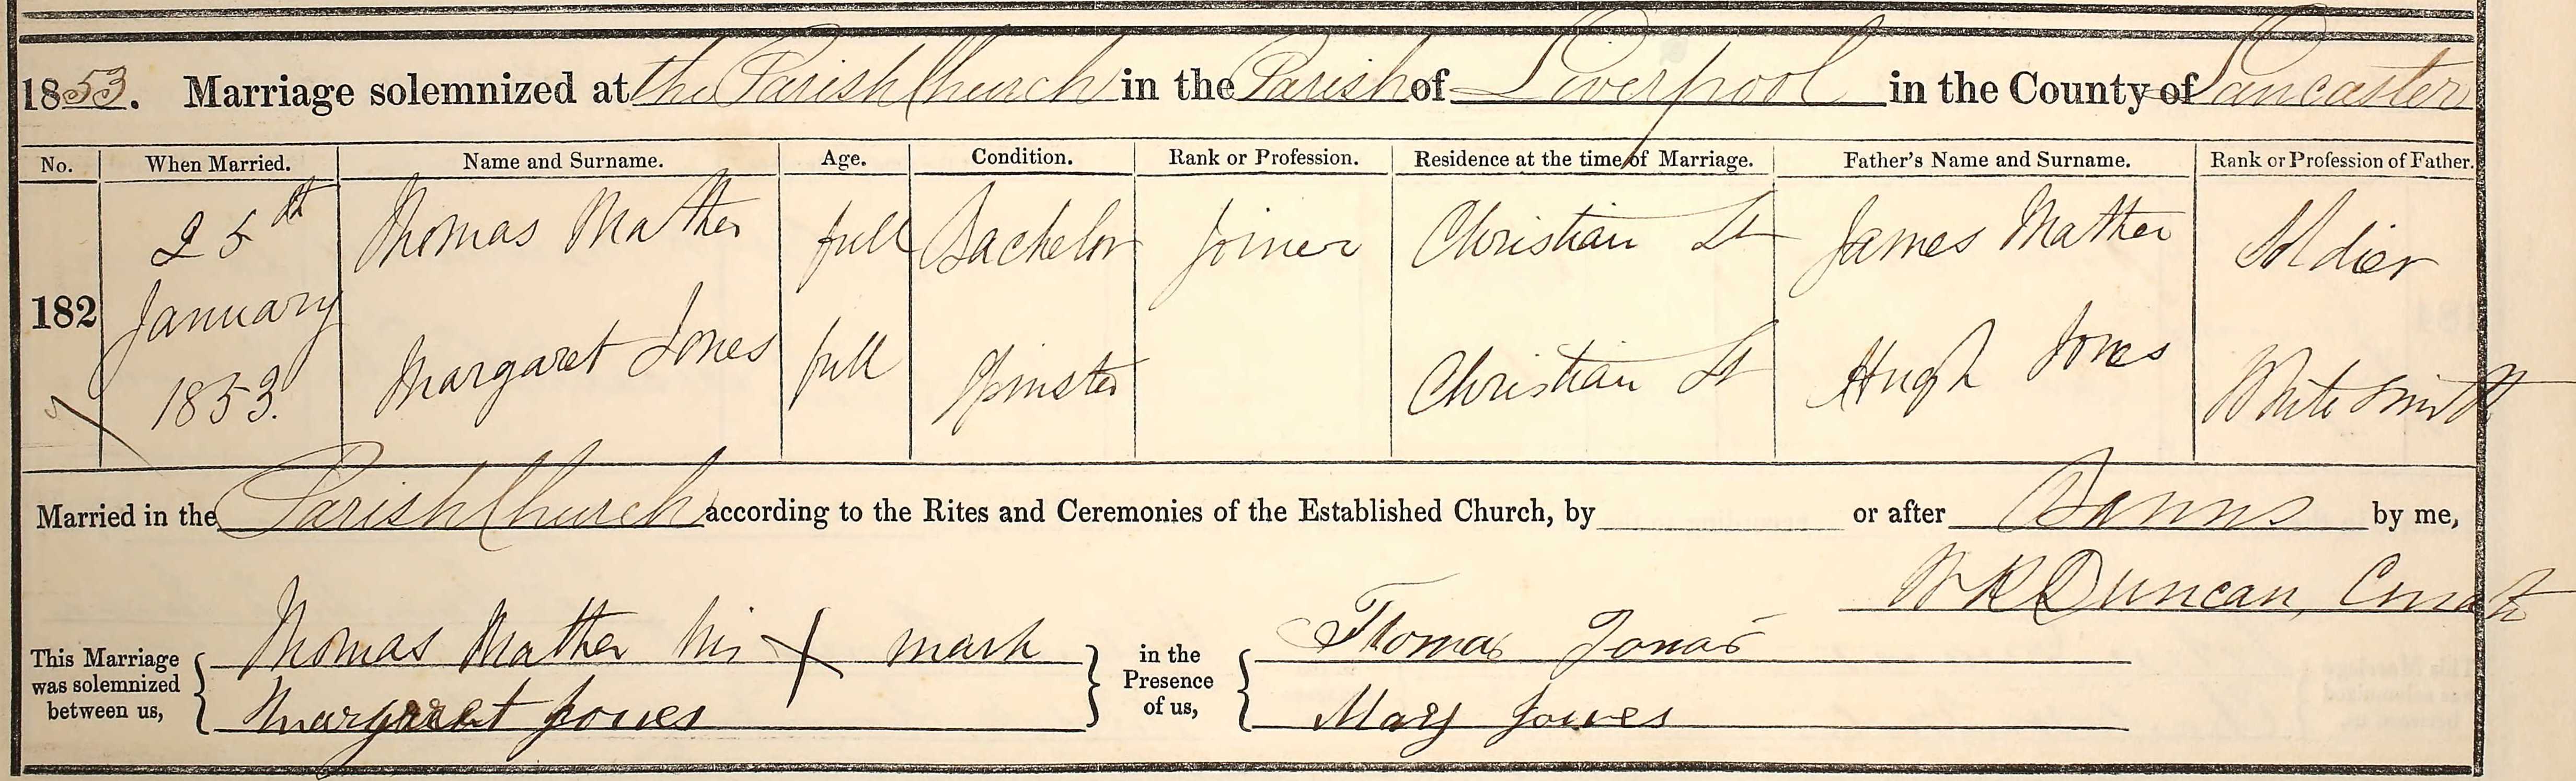 1853. Marriage solemnized at the Parish Church in the Parish of Liverpool in the County of Lancaster
No. When Married. Name and Surname. Age. Condition. Rank or Profession. Residence at the time of Marriage. Father's Name and Surname. Rank or Profession of Father.
25th Thomas Mather full Bachelor Joiner Christian St James Mather Soldier
182 January
1853. Margaret Jones full Spinster Christian St Hugh Jones White Smith
Married in the Parish Church according to the Rites and Ceremonies of the Established Church, by or after Banns by me,
W R Duncan, Curate
This Marriage was solemnized between us, Thomas Mather his X mark in the Presence of us, Thomas Jonas
Margaret Jones Mary Jones